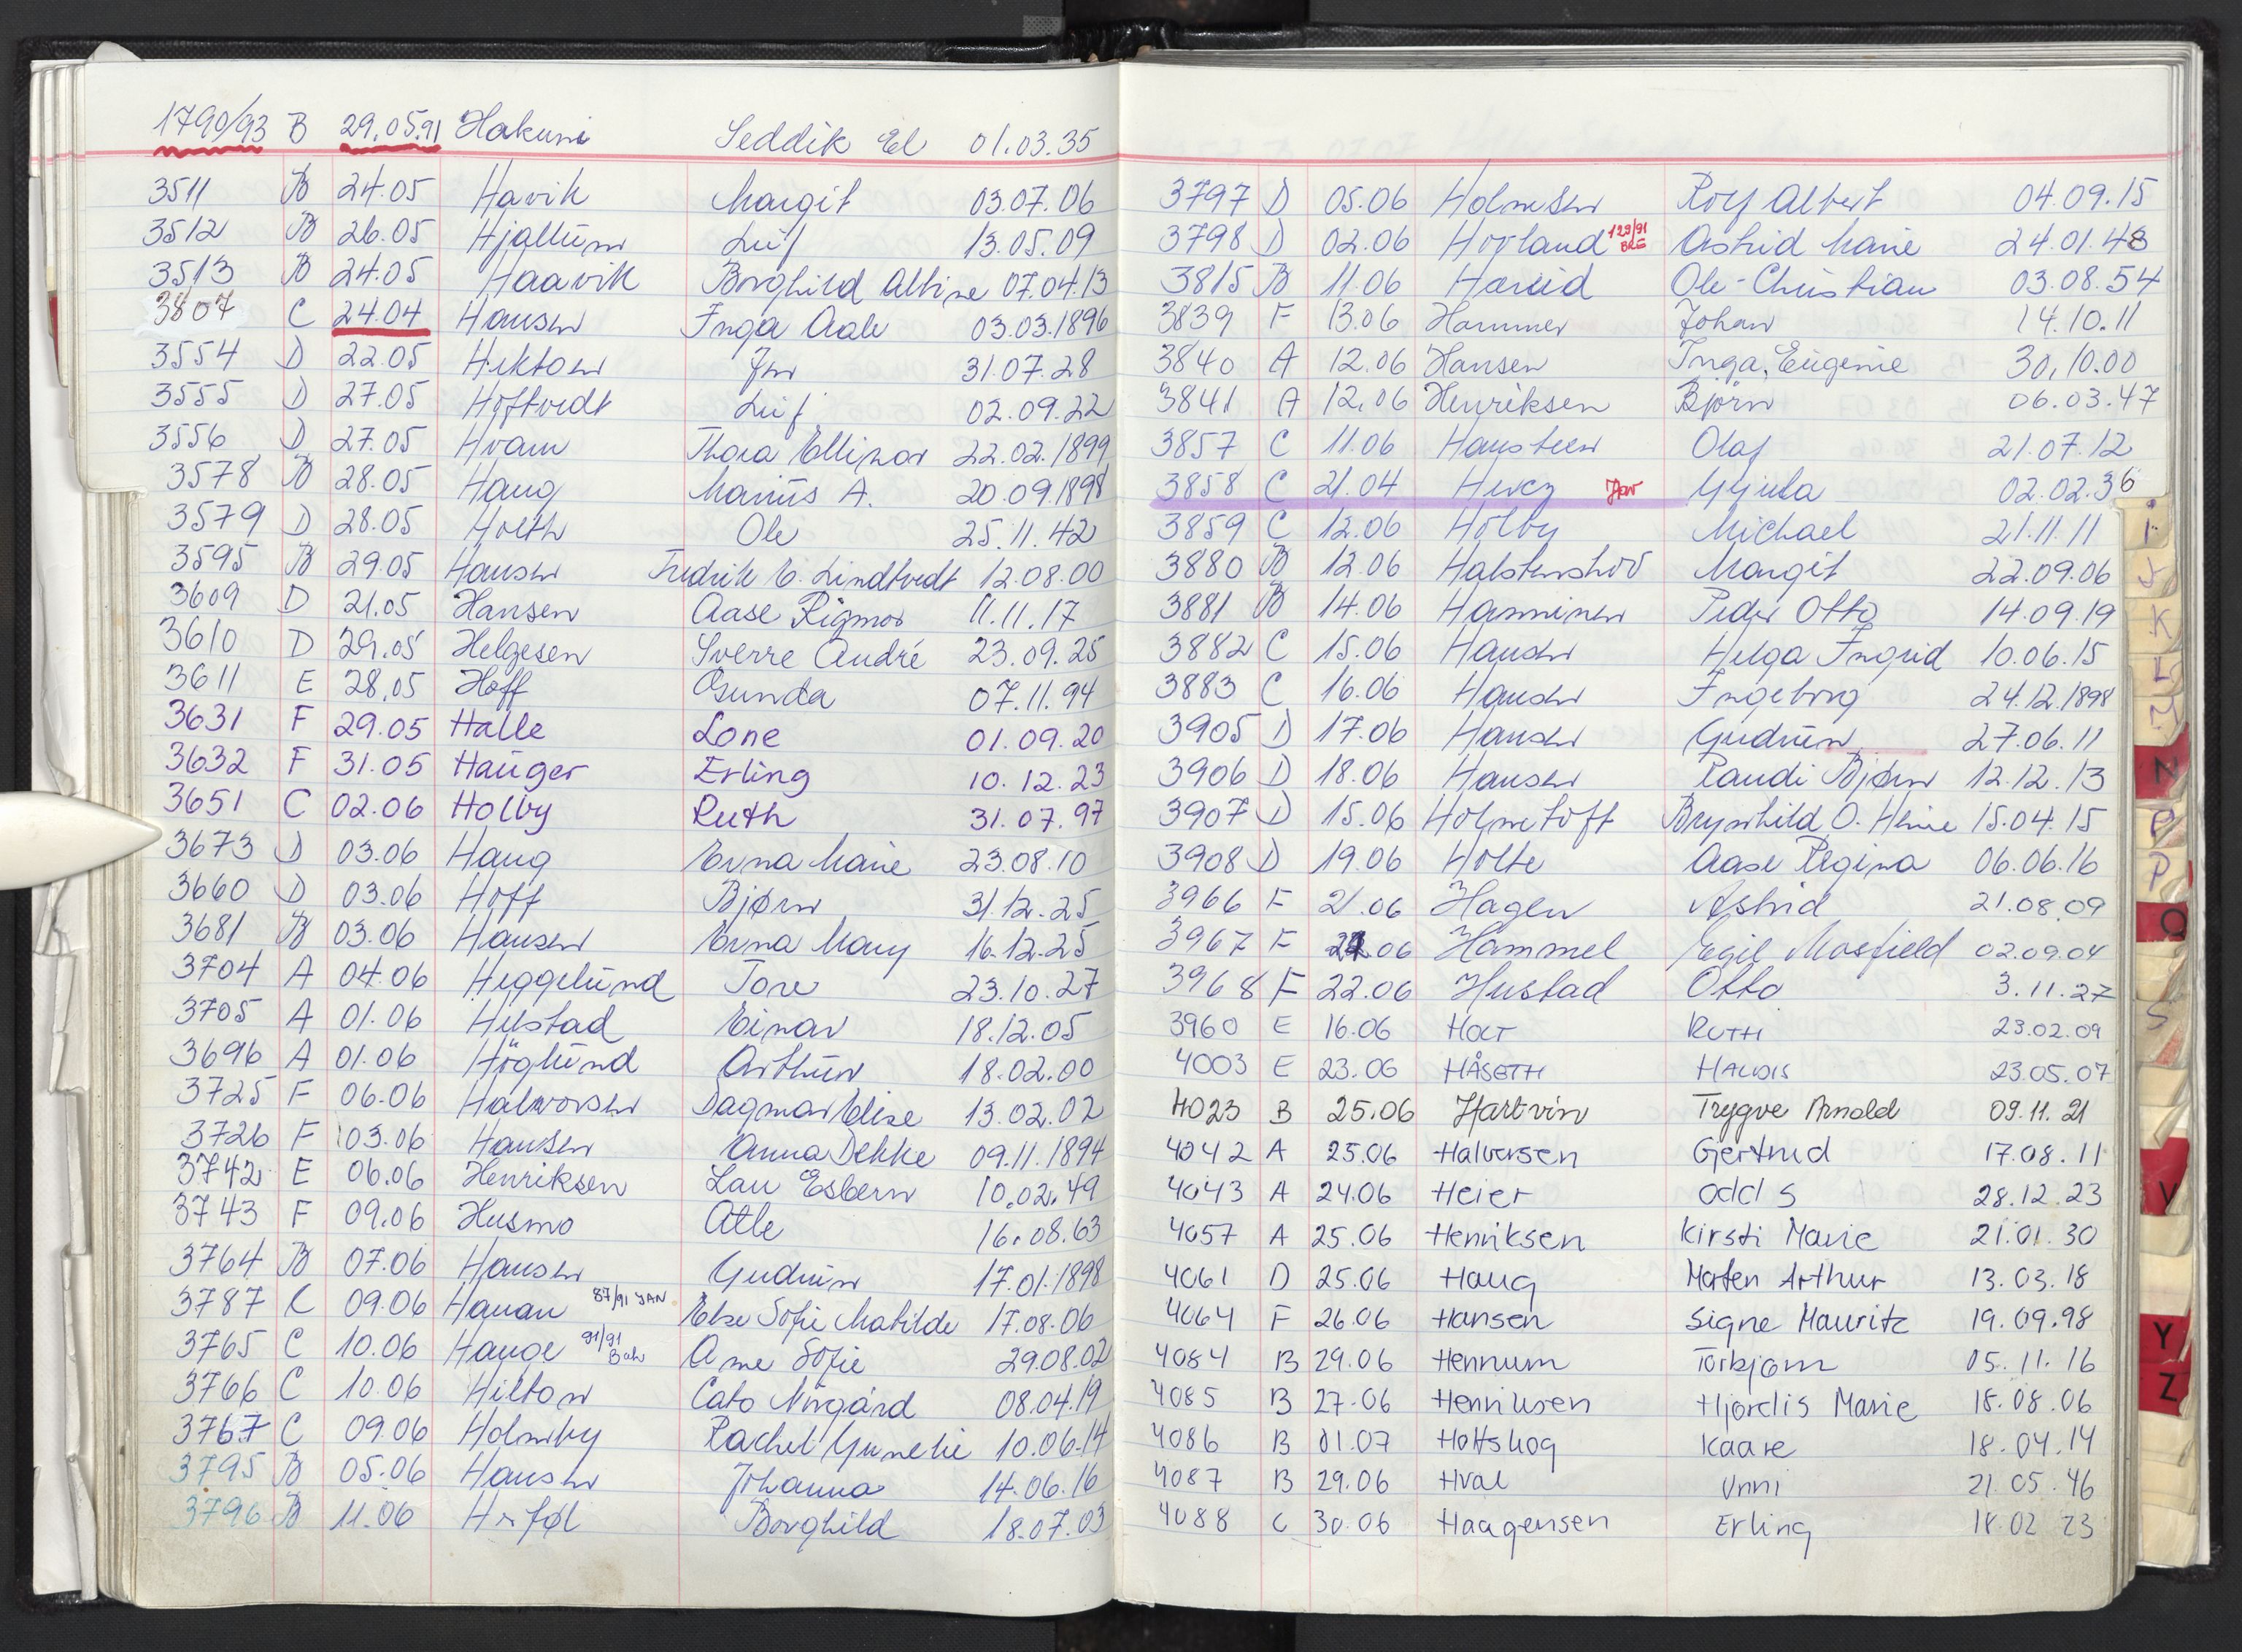 1790/93 B 29.05.91 Hakuni Seddik El 01.03.35
3511 B 24.05 Havik Margit 03.07.06
3512 B 26.05 Hjallum Leif 13.05.09
3513 B 24.05 Haavik Borghild Albine 07.04.13
3807 C 24.04 Hansen Inga Aale 03.03.1896
3554 D 22.05 Hektoen Jon 31.07.28
3555 D 27.05 Hoftvedt Leif 02.09.22
3556 D 27.05 Hvam Thora Ellinor 22.02.1899
3578 B 28.05 Haug Marius A. 20.09.1898
3579 D 28.05 Holth Ole 25.11.42
3595 B 29.05 Hansen Fredrik E. Lindtvedt 12.08.00
3609 D 21.05 Hansen Aase Rigmor 11.11.17
3610 D 29.05 Helgesen Sverre André 23.09.25
3611 E 28.05 Hoff Gunda 07.11.94
3631 F 29.05 Halle Lone 01.09.20
3632 F 31.05 Hauger Erling 10.12.23
3651 C 02.06 Holby Ruth 31.07.97
3673 D 03.06 Haug Erna Marie 23.08.10
3660 D 03.06 Hoff Bjørn 31.12.25
3681 B 03.06 Hansen Erna Mary 16.12.25
3704 A 04.06 Heggelund Tore 23.10.27
3705 A 01.06 Hustad Einar 18.12.05
3696 A 01.06 Höglund Arthur 18.02.00
3725 F 06.06 Halvorsen Dagmar Elise 13.02.02
3726 F 03.06 Hansen Anna Dekke 09.11.1894
3742 E 06.06 Henriksen Lau Esbern 10.02.49
3743 F 09.06 Husmo Atle 16.08.63
3764 B 07.06 Hansen Gudrun 17.01.1898
3787 C 09.06 Hanan 87/91 JAN Else Sofie Mathilde 17.08.06
3765 C 10.06 Hauge 91/91 Bah Anne Sofie 29.08.02
3766 C 10.06 Hilton Cato Norgård 08.04.19
3767 C 09.06 Holmby Rachel Gunelie 10.06.14
3795 B 05.06 Hansen Johanna 14.06.16
3796 B 11.06 Borghild 18.07.03
3797 D 05.06 Holmsen Rolf Albert 04.09.15
3798 D 02.06 Hovland 129/91 BRE Astrid Marie 24.01.48
3815 B 11.06 Hareid Ole-Christian 03.08.54
3839 F 13.06 Hammer Johan 14.10.11
3840 A 12.06 Hansen Inga, Eugenie 30.10.00
3841 A 12.06 Henriksen Björn 06.03.47
3857 C 11.06 Hansteen Olaf 21.07.12
3858 C 21.04 Hercz Jar Gyula 02.02.36
3859 C 12.06 Holby Michael 21.11.11
3880 B 12.06 Halstenshov Margit 22.09.06
3881 B 14.06 Hanninen Peder Otto 14.09.19
3882 C 15.06 Hansen Helga Ingrid 10.06.15
3883 C 16.06 Hansen Ingeborg 24.12.1898
3905 D 17.06 Hansen Gudrun 27.06.11
3906 D 18.06 Hansen Randi Bjørn 12.12.13
3907 D 15.06 Holmetoft Brynhild O. Heine 15.04.15
3908 D 19.06 Holte Aase Regina 06.06.16
3966 F 21.06 Hagen Astrid 21.08.09
3967 F 21.06 Hammel Egil Mosfield 02.09.04
3968 F 22.06 Hustad Otto 3.11.27
3960 E 16.06 HOLT RUTH 23.02.09
4003 E 23.06 HÅSETH HALDIS 23.05.07
4023 B 25.06 Hartvin Trygve Arnold 09.11.21
4042 A 25.06 Halvorsen Gertrud 17.08.11
4043 A 24.06 Heier Odd S 28.12.23
4057 A 25.06 Henriksen Kirsti Marie 21.01.30
4061 D 25.06 Haug Marten Arthur 13.03.18
4064 F 26.06 Hansen Signe Mauritz 19.09.98
4084 B 29.06 Hennum Torbjørn 05.11.16
4085 B 27.06 Henriksen Hjørdis Marie 18.08.06
4086 B 01.07 Holtskog Kaare 18.04.14
4087 B 29.06 Hval Unni 21.05.46
4088 C 30.06 Haagensen Erling 18.02 23
i
J
K
L
N
P
Q
S
V
Y
Z